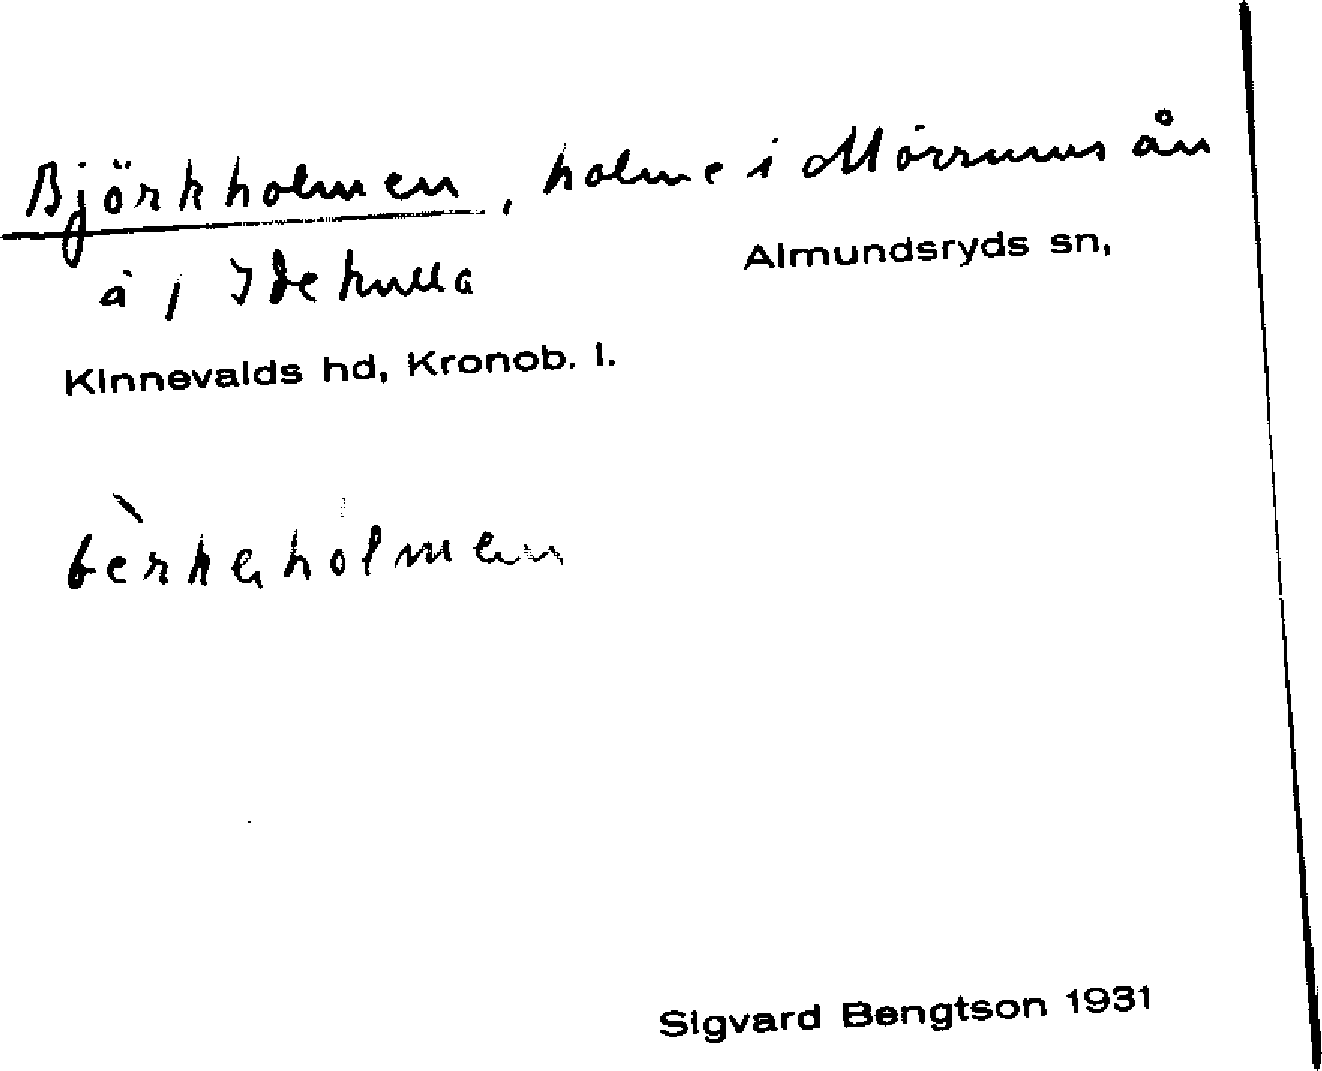 Björkholmen, holme i Mörrums ån
å / Idekulla Almundsryds sn,
Kinnevalds hd, Kronob. l.
bèrkahólmen
Sigvard Bengtson 1931